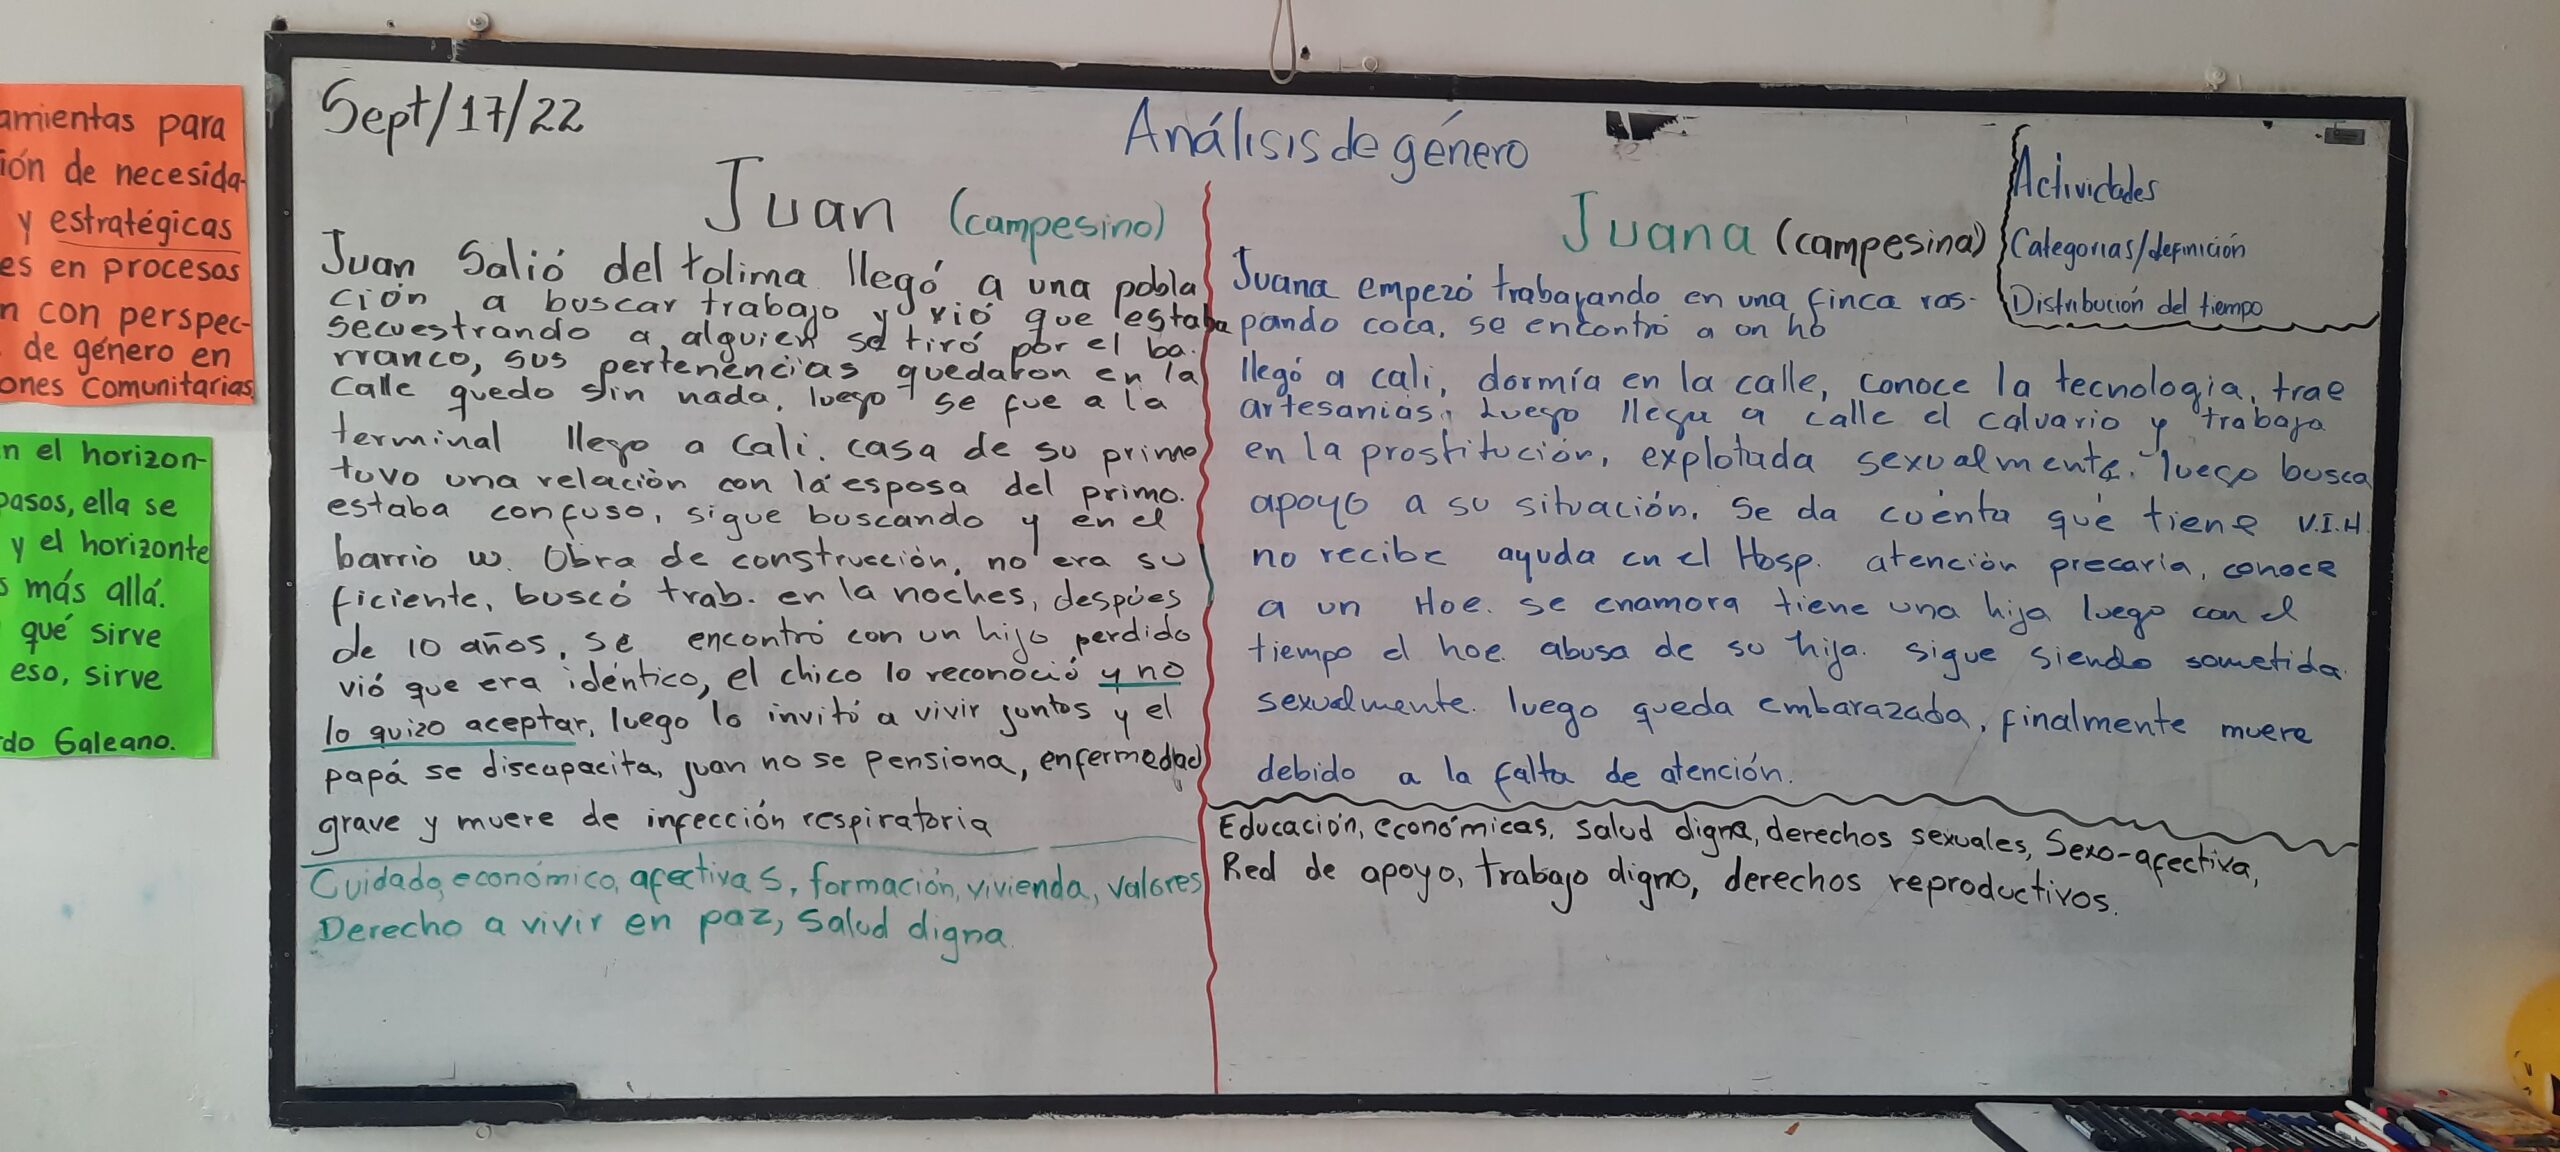 amientas para
ión de necesida-
y estratégicas
es en procesos
n con perspec-
de género en
ones comunitarias
n el horizon-
pasos, ella se
y el horizonte
s más allá.
qué sirve
eso, sirve
do Galeano.
Sept/17/22
Análisis de género
Juan (campesino)
Juan Salió del tolima llegó a una pobla
ción a buscar trabajo y vió que estaba
secuestrando a alguien se tiró por el ba-
rranco, sus pertenencias quedaron en la
calle quedo sin nada, luego se fue a la
terminal llego a cali. casa de su primo
tuvo una relación con la esposa del primo.
estaba confuso, sigue buscando y en el
barrio w. Obra de construcción, no era su
ficiente, buscó trab. en la noches, despúes
de 10 años, se encontró con un hijo perdido
vió que era idéntico, el chico lo reconoció y no
lo quizo aceptar, luego lo invitó a vivir juntos y el
papá se discapacita, juan no se pensiona, enfermedad
grave y muere de infección respiratoria
Cuidado, económico, afectivas, formación, vivienda, valores
Derecho a vivir en paz, salud digna
Juana (campesina)
Juana empezó trabajando en una finca ras-
pando coca, se encontró a un ho
llegó a cali, dormía en la calle, conoce la tecnologia, trae
artesanías, Luego llega a calle el calvario y trabaja
en la prostitución, explotada sexualmente. luego busca
apoyo a su situación. Se da cuenta que tiene V.I.H.
no recibe ayuda en el Hosp. atención precaria, conoce
a un Hoe. se enamora tiene una hija luego con el
tiempo el hoe. abusa de su hija. sigue siendo sometida
sexualmente. luego queda embarazada, finalmente muere
debido a la falta de atención.
Educación, económicas, salud digna, derechos sexuales, Sexo-afectiva,
Red de apoyo, trabajo digno, derechos reproductivos.
Actividades
Categorías/definición
Distribución del tiempo